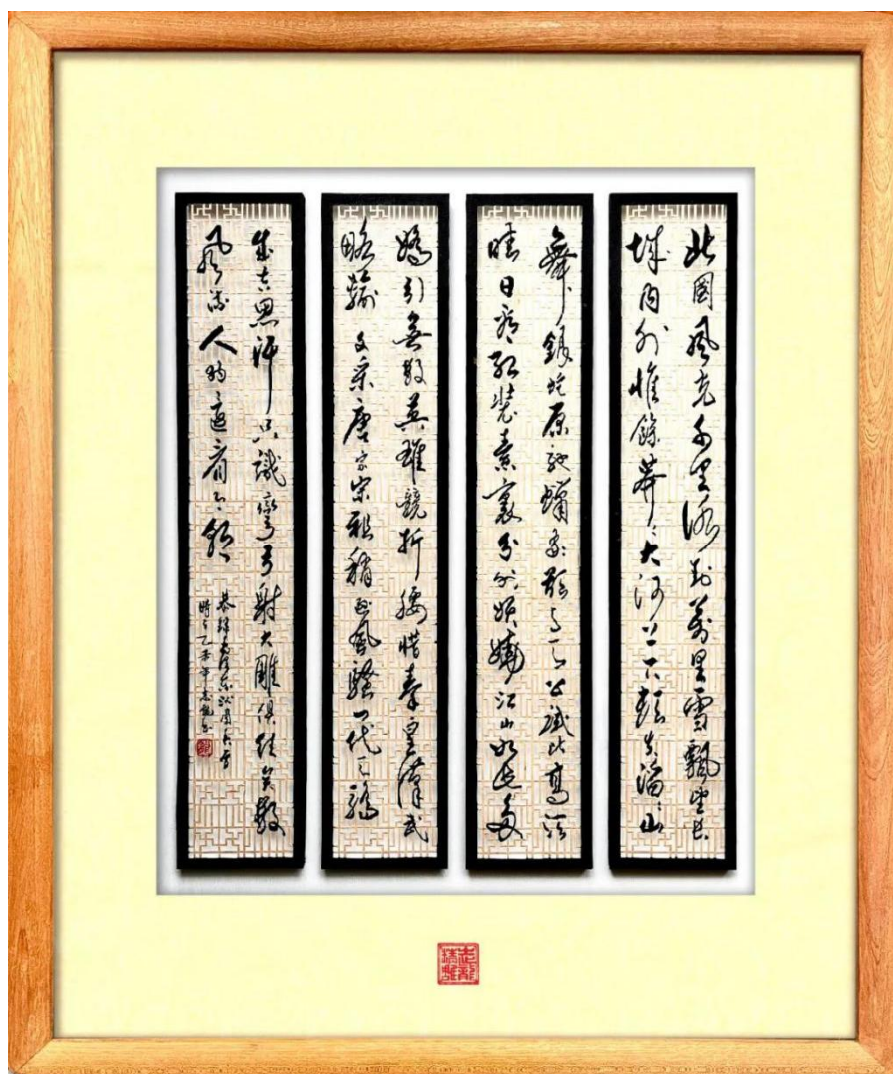 北國風光千里冰封萬里雪飄望長
城內外惟餘莽〻大河上下頓失滔〻山
舞銀蛇原馳蠟象欲與天公試比高須
晴日看紅裝素裹分外妖嬈江山如此多
嬌引無數英雄競折腰惜秦皇漢武
略輸文采唐宗宋祖稍遜風騷一代天驕
成吉思汗只識彎弓射大雕俱往矣數
風流人物還看今朝
恭錄毛澤東沁園春雪